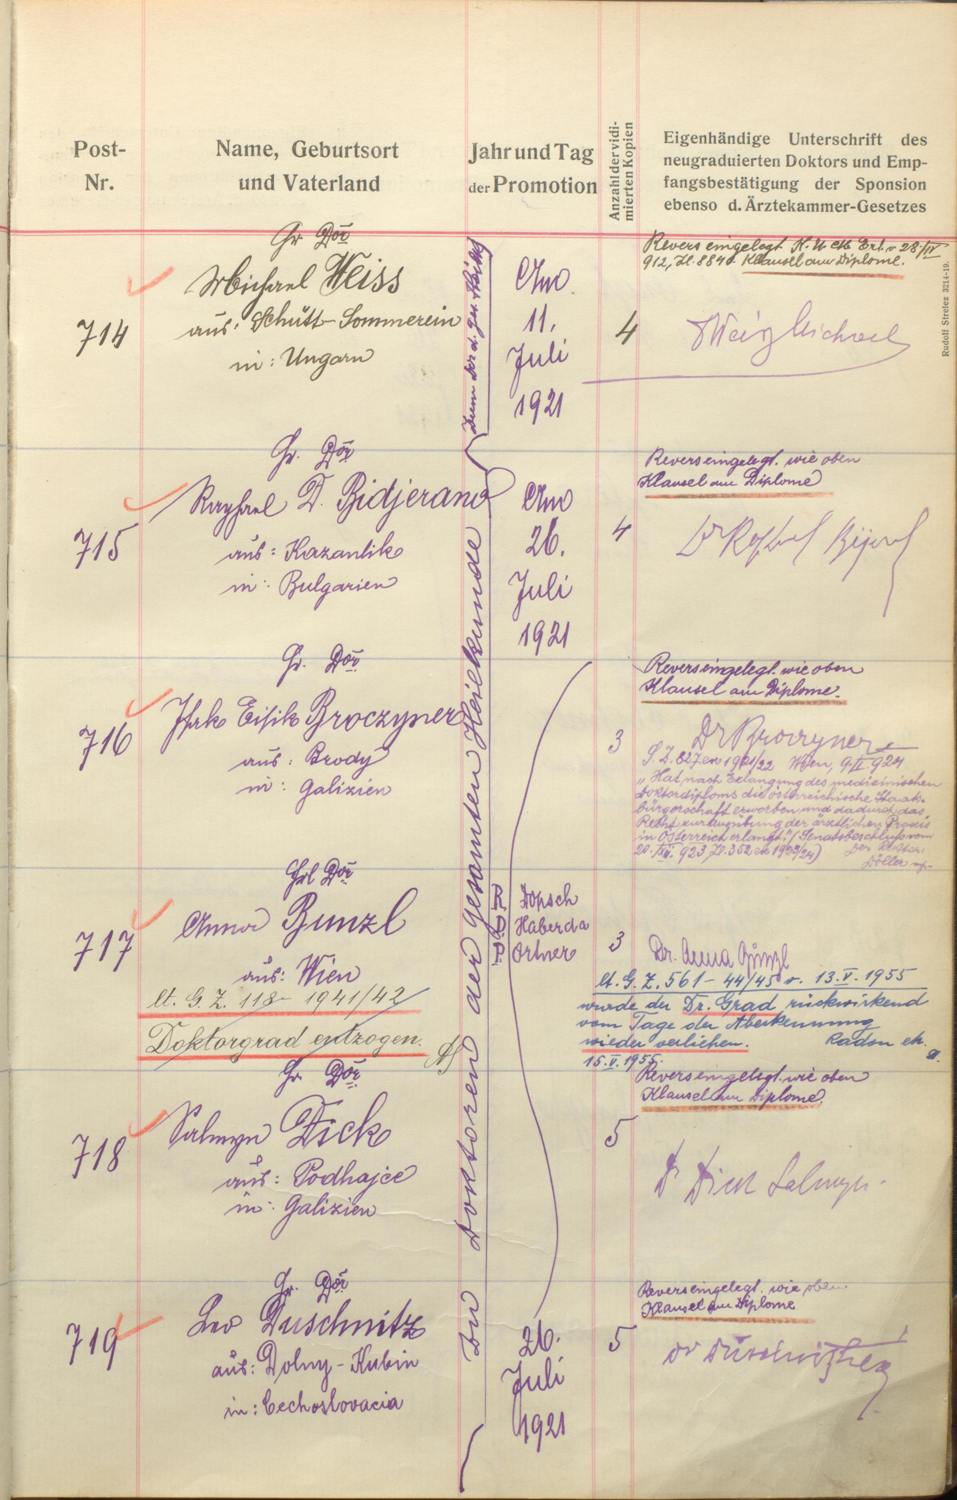 Post-
Nr.
Name, Geburtsort
und Vaterland
Jahr und Tag
der Promotion
Anzahl der vidi-
mierten Kopien
Eigenhändige Unterschrift des
neugraduierten Doktors und Emp-
fangsbestätigung der Sponsion
ebenso d. Ärztekammer-Gesetzes
Rudolf Strelez 3214-19.
Hr Dor
Michael Weiss
714
aus: Schütt-Sommerein
in: Ungarn
Am
11.
Juli
1921
4
Revers eingelegt K. U. Erl. v. 28/IV
912, Zl. 8840 Klausel am Diplome.
Weisz Michael
Hr. Dor
715
Raphael D. Bidjerano
aus: Kazanlik
in: Bulgarien
Am
26.
Juli
1921
4
Revers eingelegt. wie oben
Klausel am Diplome
Hr. Dor
716
Isak Eisik Broczyner
aus: Brody
in: Galizien
3
Revers eingelegt. wie oben
Klausel am Diplome.
Dr Broczyner
G. Z. 827 en 1921/22 Wien, 9/II 924
"Hat nach Erlangung des medizinischen
Doktordiploms die österreichische Staats-
bürgerschaft erworben und dadurch das
Recht zur Ausübung der ärztlichen Praxis
in Österreich erlangt." (Senatsbeschluss vom
20. XII. 923, Zl. 362 ex 1923/24) Der Rektor:
Frl Dor
717
Anna Bunzl
aus: Wien
lt. G. Z. 118- 1941/42
Doktorgrad entzogen.
R. Dopsch
D. Haberda
P. Ortner
3
Dr. Anna Bunzl
lt. G. Z. 561 - 44/45 v. 13. V. 1955
wurde der Dr. Grad rückwirkend
vom Tage der Aberkennung
wieder verliehen. Radon eh.
15. V. 1955.
Hr Dor
718
Salmyn Dick
aus: Podhajce
in: Galizien
5
Revers eingelegt. wie oben
Klausel am Diplome.
Dr Dick Salmyn.
Hr. Dor
719
Leo Duschnitz
aus: Dolny-Kubin
in: Cechoslovacia
26.
Juli
1921
5
Revers eingelegt. wie oben.
Klausel am Diplome
Dr Duschnitz Leo
Zum Dor d. ges. Heilk.
Zu Doktoren der gesamten Heilkunde